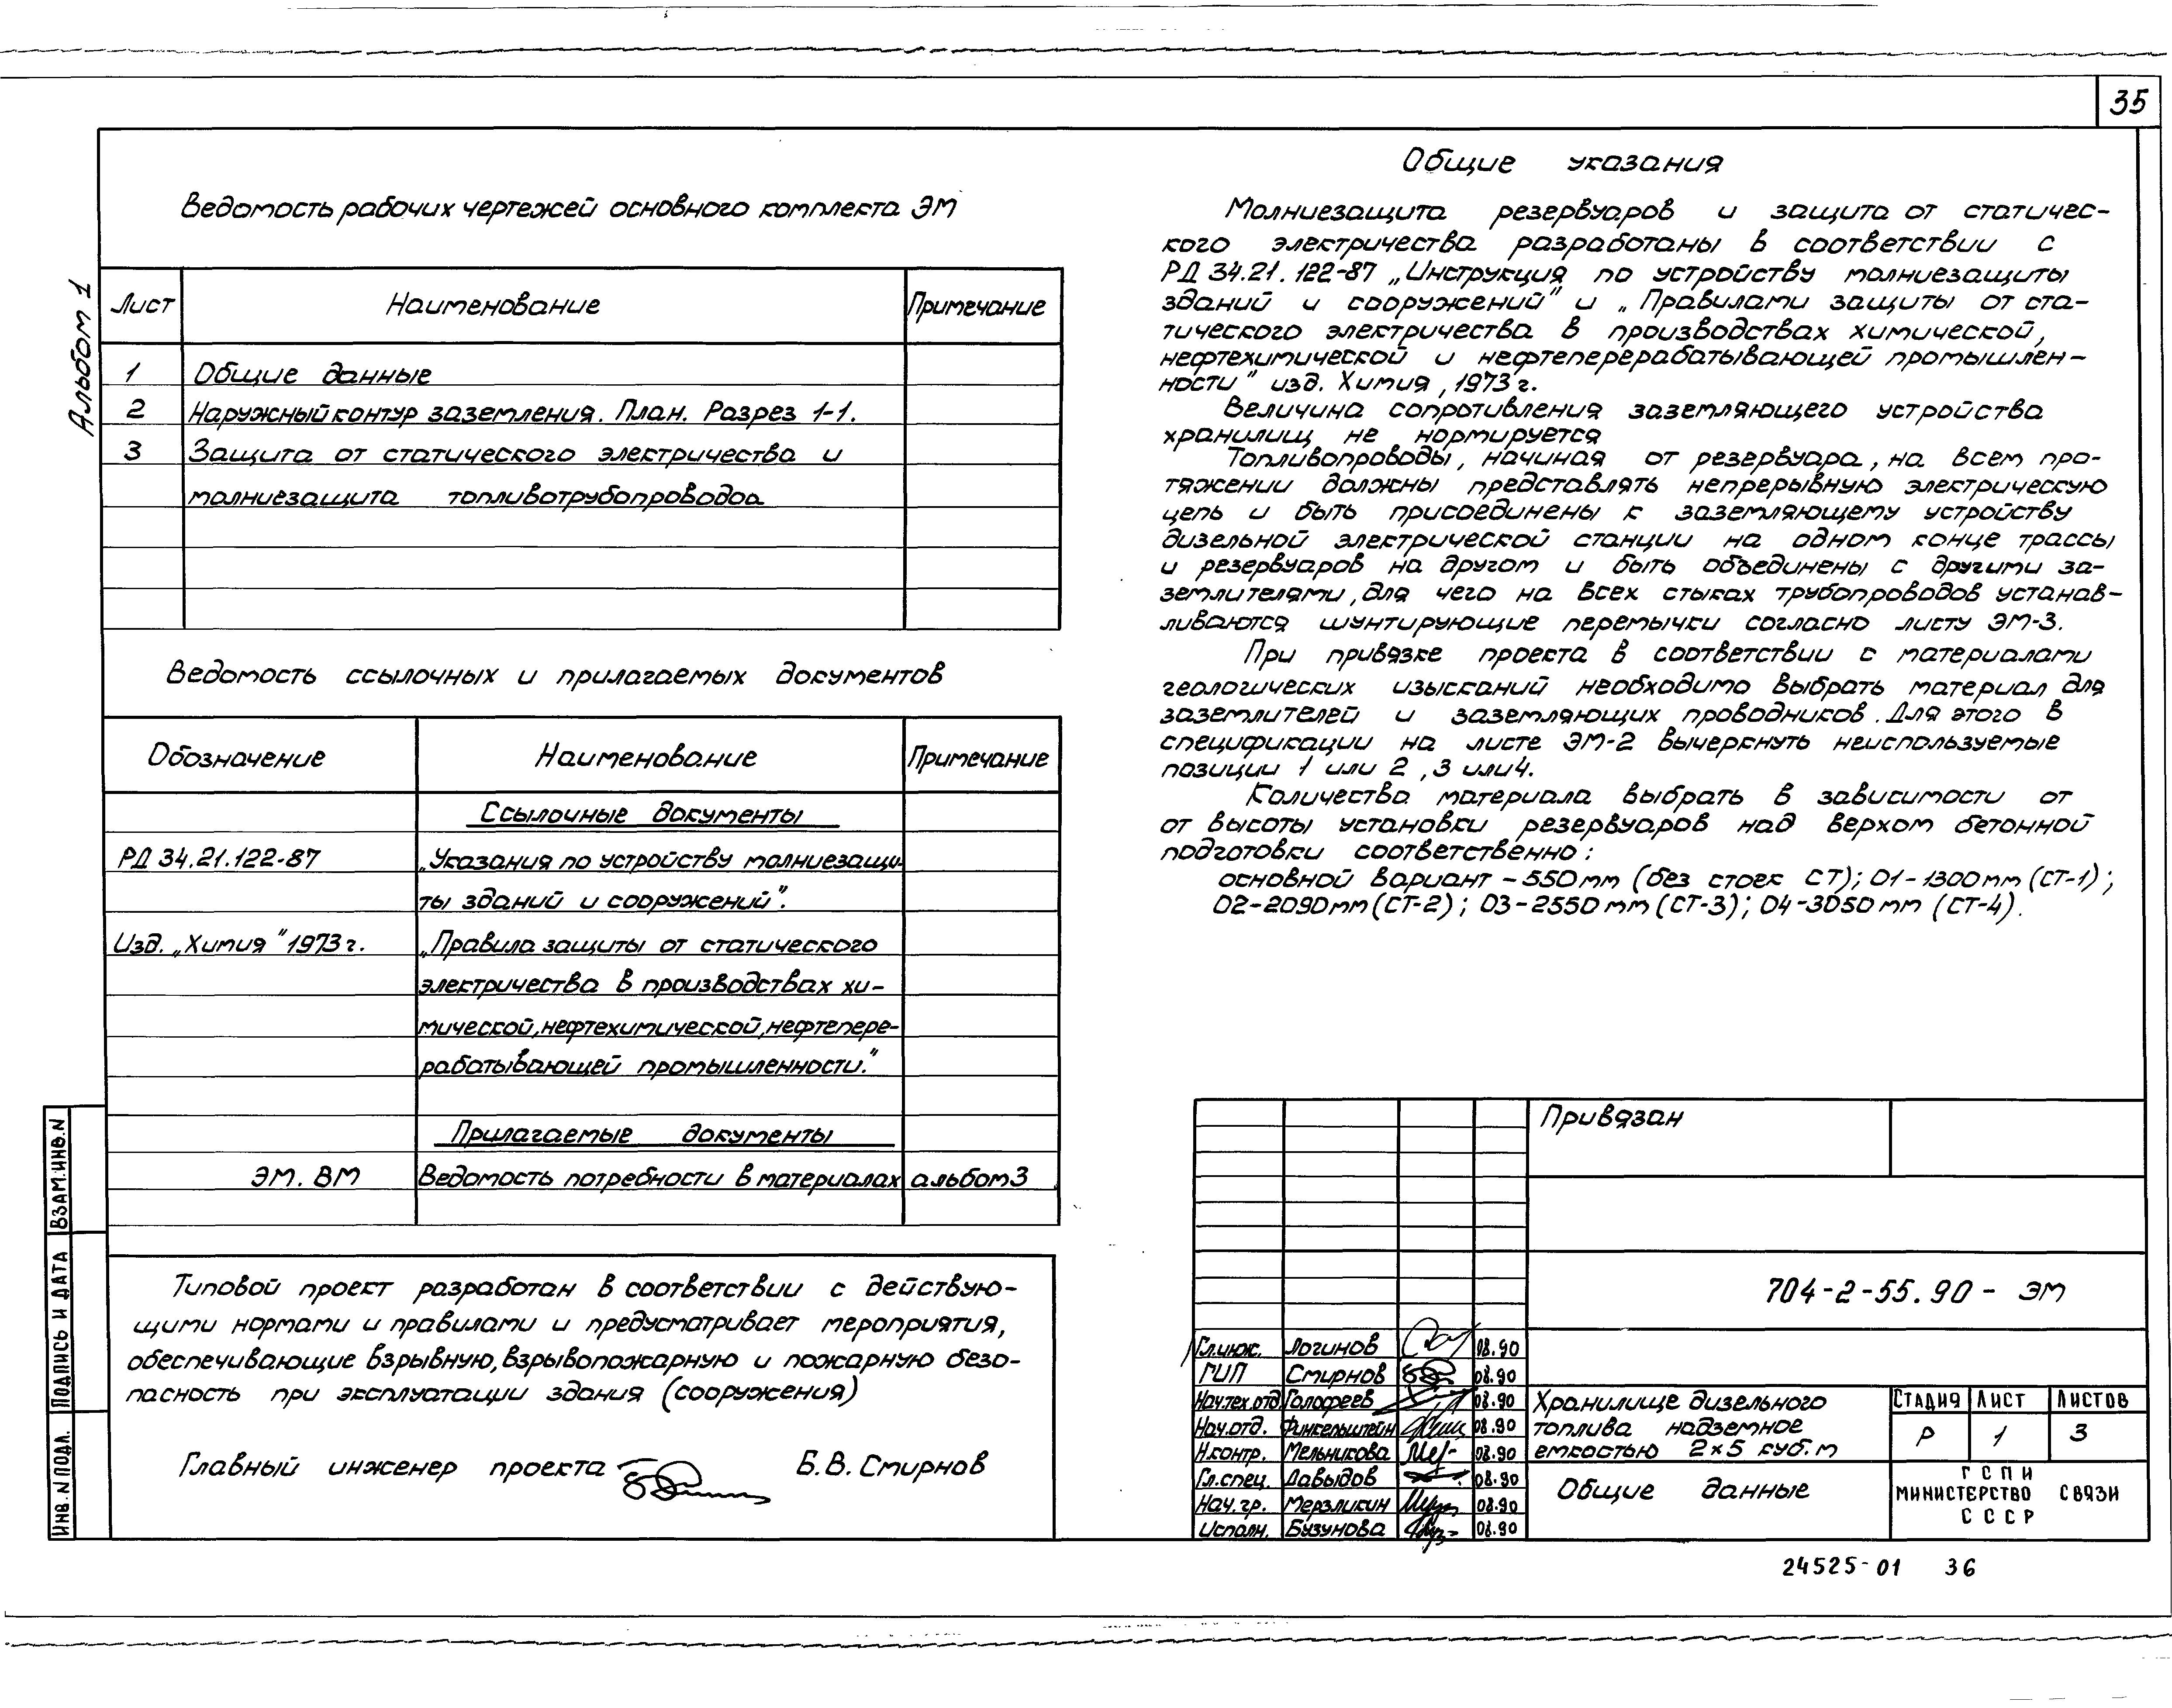 35
Альбом 1
Ведомость рабочих чертежей основного комплекта ЭМ
Лист Наименование Примечание
1 Общие данные
2 Наружный контур заземления. План. Разрез 1-1.
3 Защита от статического электричества и
молниезащита топливотрубопроводов
Ведомость ссылочных и прилагаемых документов
Обозначение Наименование Примечание
Ссылочные документы
РД 34.21.122-87 „Указания по устройству молниезащи-
ты зданий и сооружений".
Изд. „Химия" 1973 г. „Правила защиты от статического
электричества в производствах хи-
мической, нефтехимической, нефтепере-
рабатывающей промышленности."
Прилагаемые документы
ЭМ. ВМ Ведомость потребности в материалах альбом 3
Типовой проект разработан в соответствии с действую-
щими нормами и правилами и предусматривает мероприятия,
обеспечивающие взрывную, взрывопожарную и пожарную безо-
пасность при эксплуатации здания (сооружения)
Главный инженер проекта Б.В. Смирнов
Общие указания
Молниезащита резервуаров и защита от статичес-
кого электричества разработаны в соответствии с
РД 34.21.122-87 „Инструкция по устройству молниезащиты
зданий и сооружений" и „Правилами защиты от ста-
тического электричества в производствах химической,
нефтехимической и нефтеперерабатывающей промышлен-
ности" изд. Химия, 1973 г.
Величина сопротивления заземляющего устройства
хранилищ не нормируется
Топливопроводы, начиная от резервуара, на всем про-
тяжении должны представлять непрерывную электрическую
цепь и быть присоединены к заземляющему устройству
дизельной электрической станции на одном конце трассы
и резервуаров на другом и быть объединены с другими за-
землителями, для чего на всех стыках трубопроводов устанав-
ливаются шунтирующие перемычки согласно листу ЭМ-3.
При привязке проекта в соответствии с материалами
геологических изысканий необходимо выбрать материал для
заземлителей и заземляющих проводников. Для этого в
спецификации на листе ЭМ-2 вычеркнуть неиспользуемые
позиции 1 или 2, 3 или 4.
Количества материала выбрать в зависимости от
от высоты установки резервуаров над верхом бетонной
подготовки соответственно:
основной вариант - 550 мм (без стоек СТ); 01-1300 мм (СТ-1);
02-2090 мм (СТ-2); 03-2550 мм (СТ-3); 04-3050 мм (СТ-4).
Привязан
704-2-55.90 - ЭМ
Гл.инж. Логинов 08.90
ГИП Смирнов 08.90
Нач.тех.отд Голофеев 08.90
Нач.отд. Финкельштейн 08.90
Н.контр. Мельникова 08.90
Гл.спец. Давыдов 08.90
Нач.гр. Мерзликин 08.90
Исполн. Бузунова 08.90
Хранилище дизельного
топлива надземное
емкостью 2×5 куб.м
СТАДИЯ ЛИСТ ЛИСТОВ
Р 1 3
Общие данные
ГСПИ
МИНИСТЕРСТВО СВЯЗИ
СССР
ВЗАМ.ИНВ.N
ПОДПИСЬ И ДАТА
ИНВ.N ПОДЛ.
24525-01 36